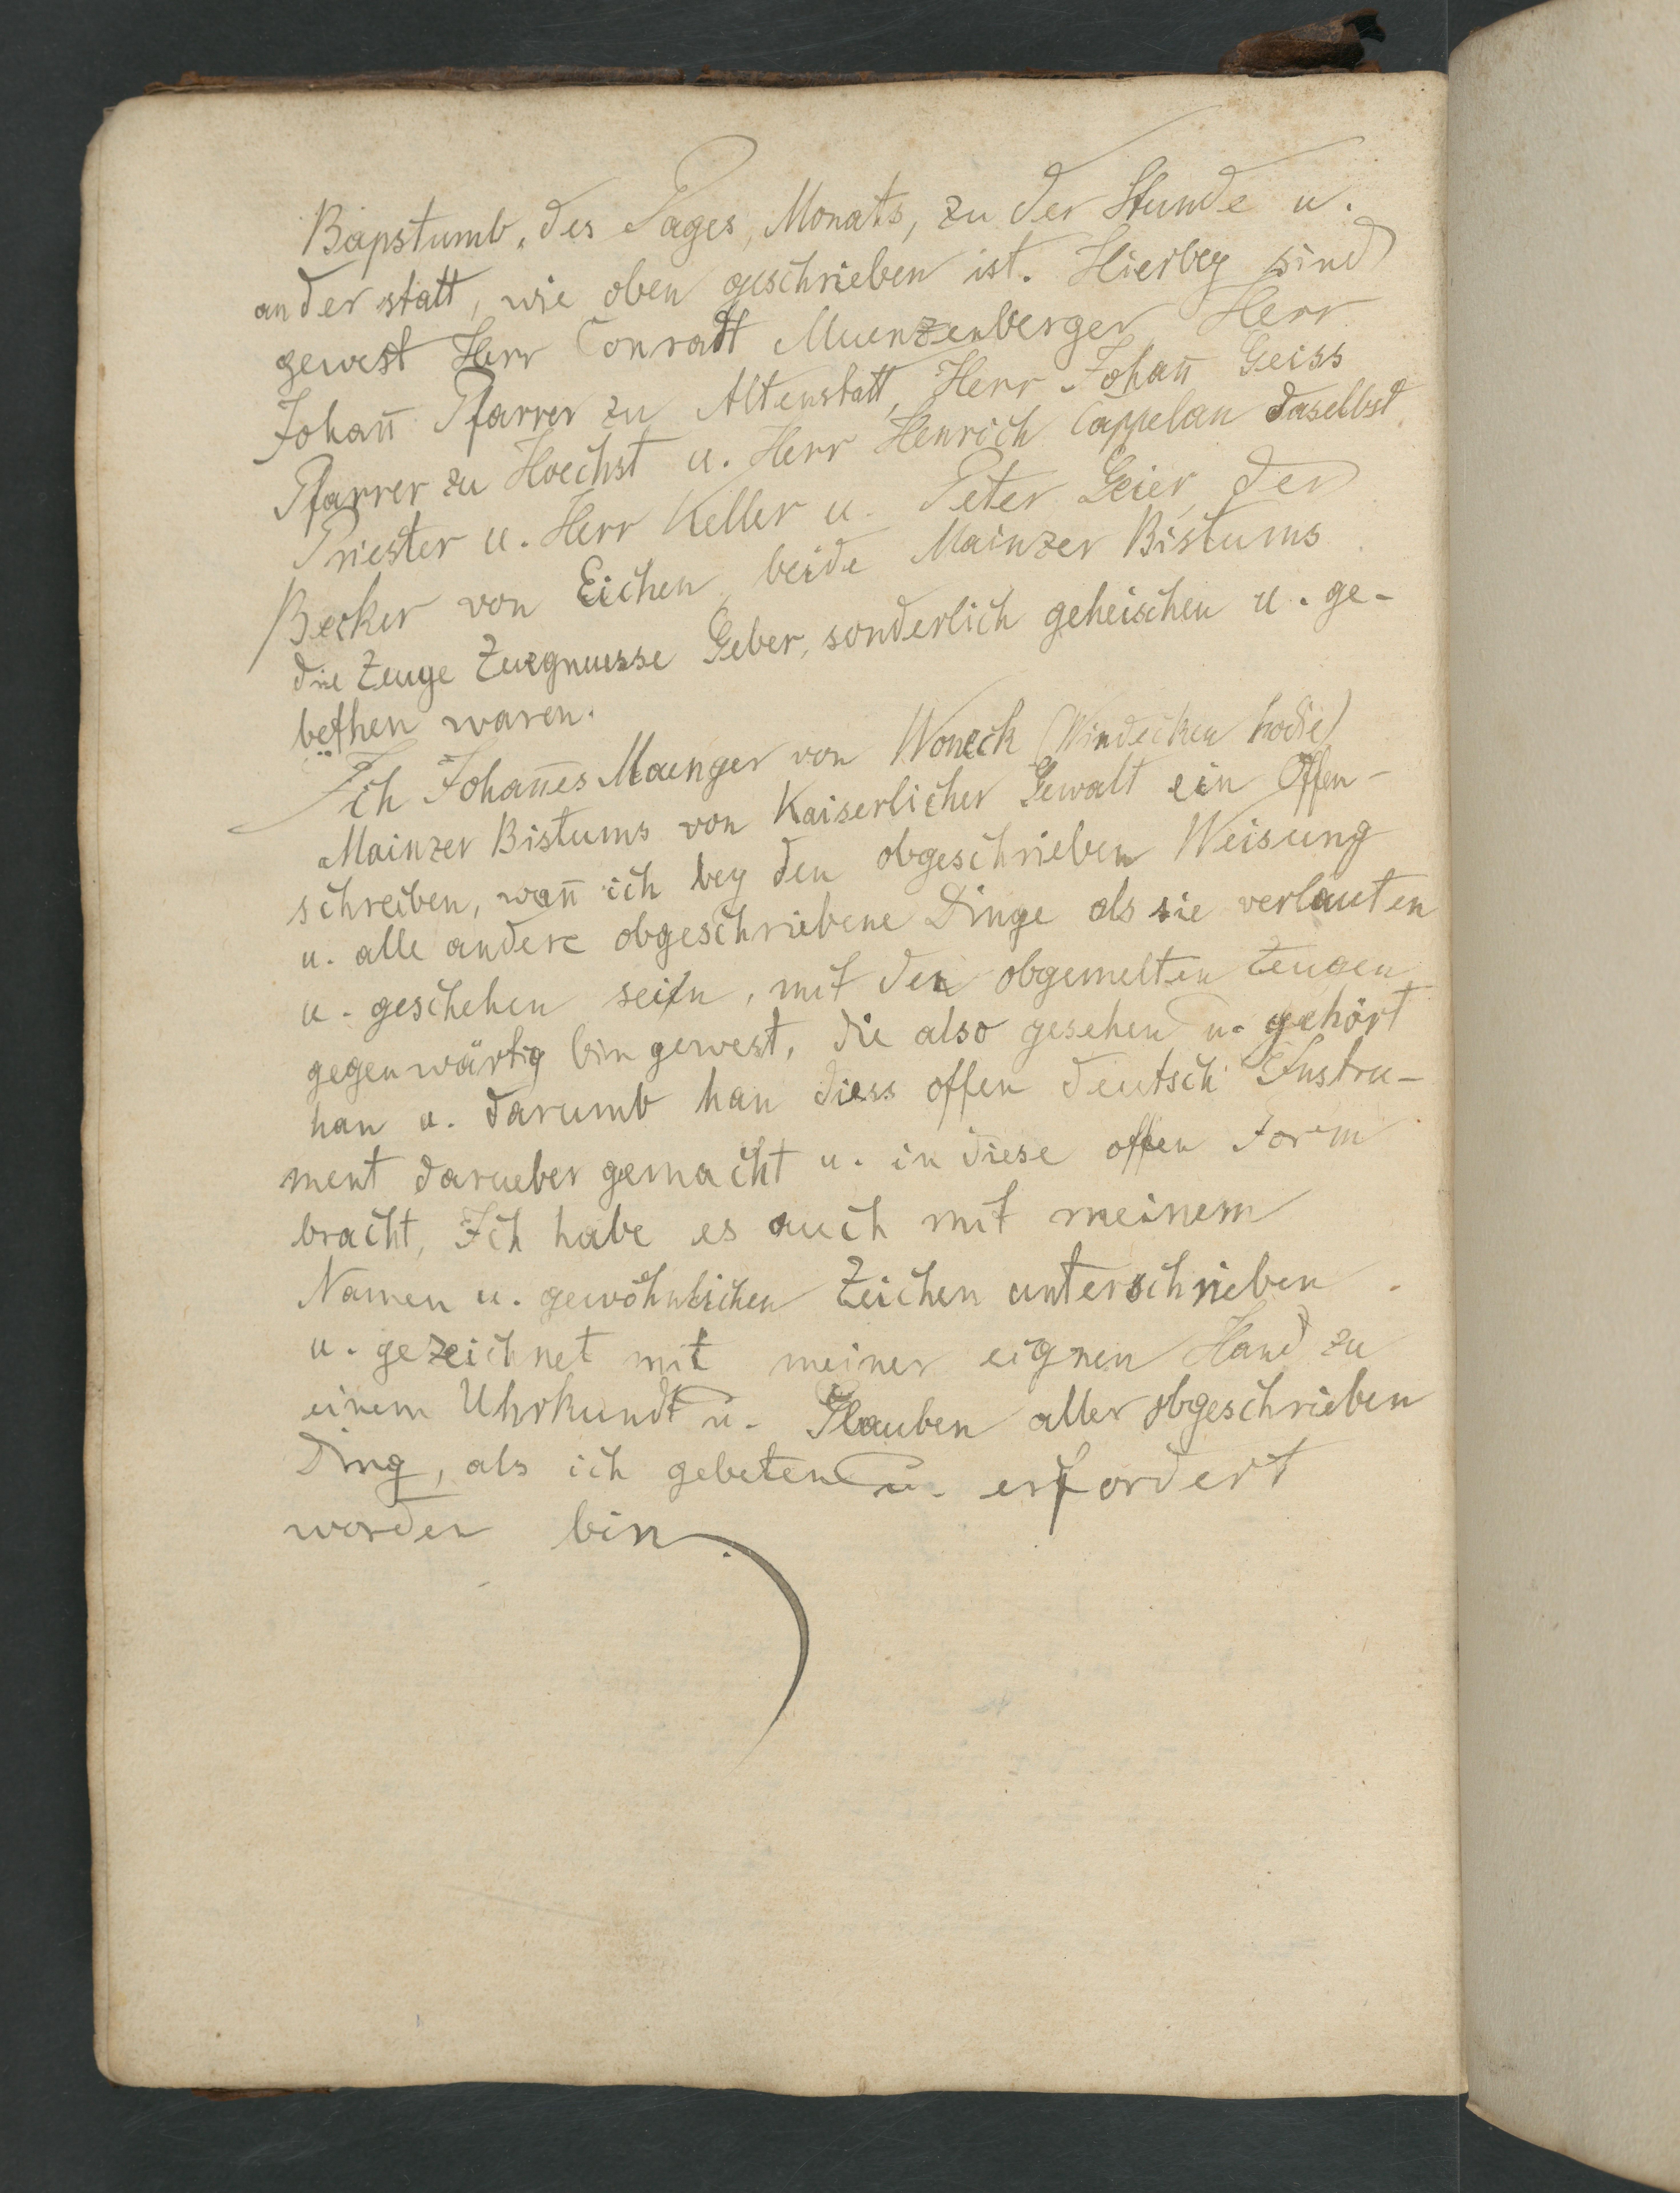 Bapstumb, des Tages, Monats, zu der Stunde u.
an der statt, wie oben geschrieben ist. Hierbey sind
gewest Herr Conradt Muenzenberger Herr
Johan̄ Pfarrer zu Altenstatt, Herr Johan̄ Geiss
Pfarrer zu Hoechst u. Herr Henrich Cappelan daselbst
Priester u. Herr Keller u. Peter Geier, der
Becker von Eichen, beide Mainzer Bistums
die Zeuge Zuegnuesse Geber, sonderlich geheischen u. ge-
bethen waren.
Ich Johan̄es Maenger von Woneck (Windecken hodie)
Mainzer Bistums von Kaiserlicher Gewalt ein Offen-
schreiben, wan̄ ich bey den obgeschrieben Weisung
u. alle andere obgeschriebene Dinge als sie verlauten
u. geschehen sein, mit den obgemelten Zeugen
gegenwärtig bin gewest, die also gesehen u. gehört
han u. darumb han diess offen deutsch Instru-
ment darueber gemacht u. in diese offen Form
bracht, Ich habe es auch mit meinem
Namen u. gewöhnlichen Zeichen unterschrieben
u. gezeichnet mit meiner eignen Hand zu
einem Uhrkundt u. Glauben aller obgeschrieben
Ding, als ich gebeten u. erfordert
worden bin.